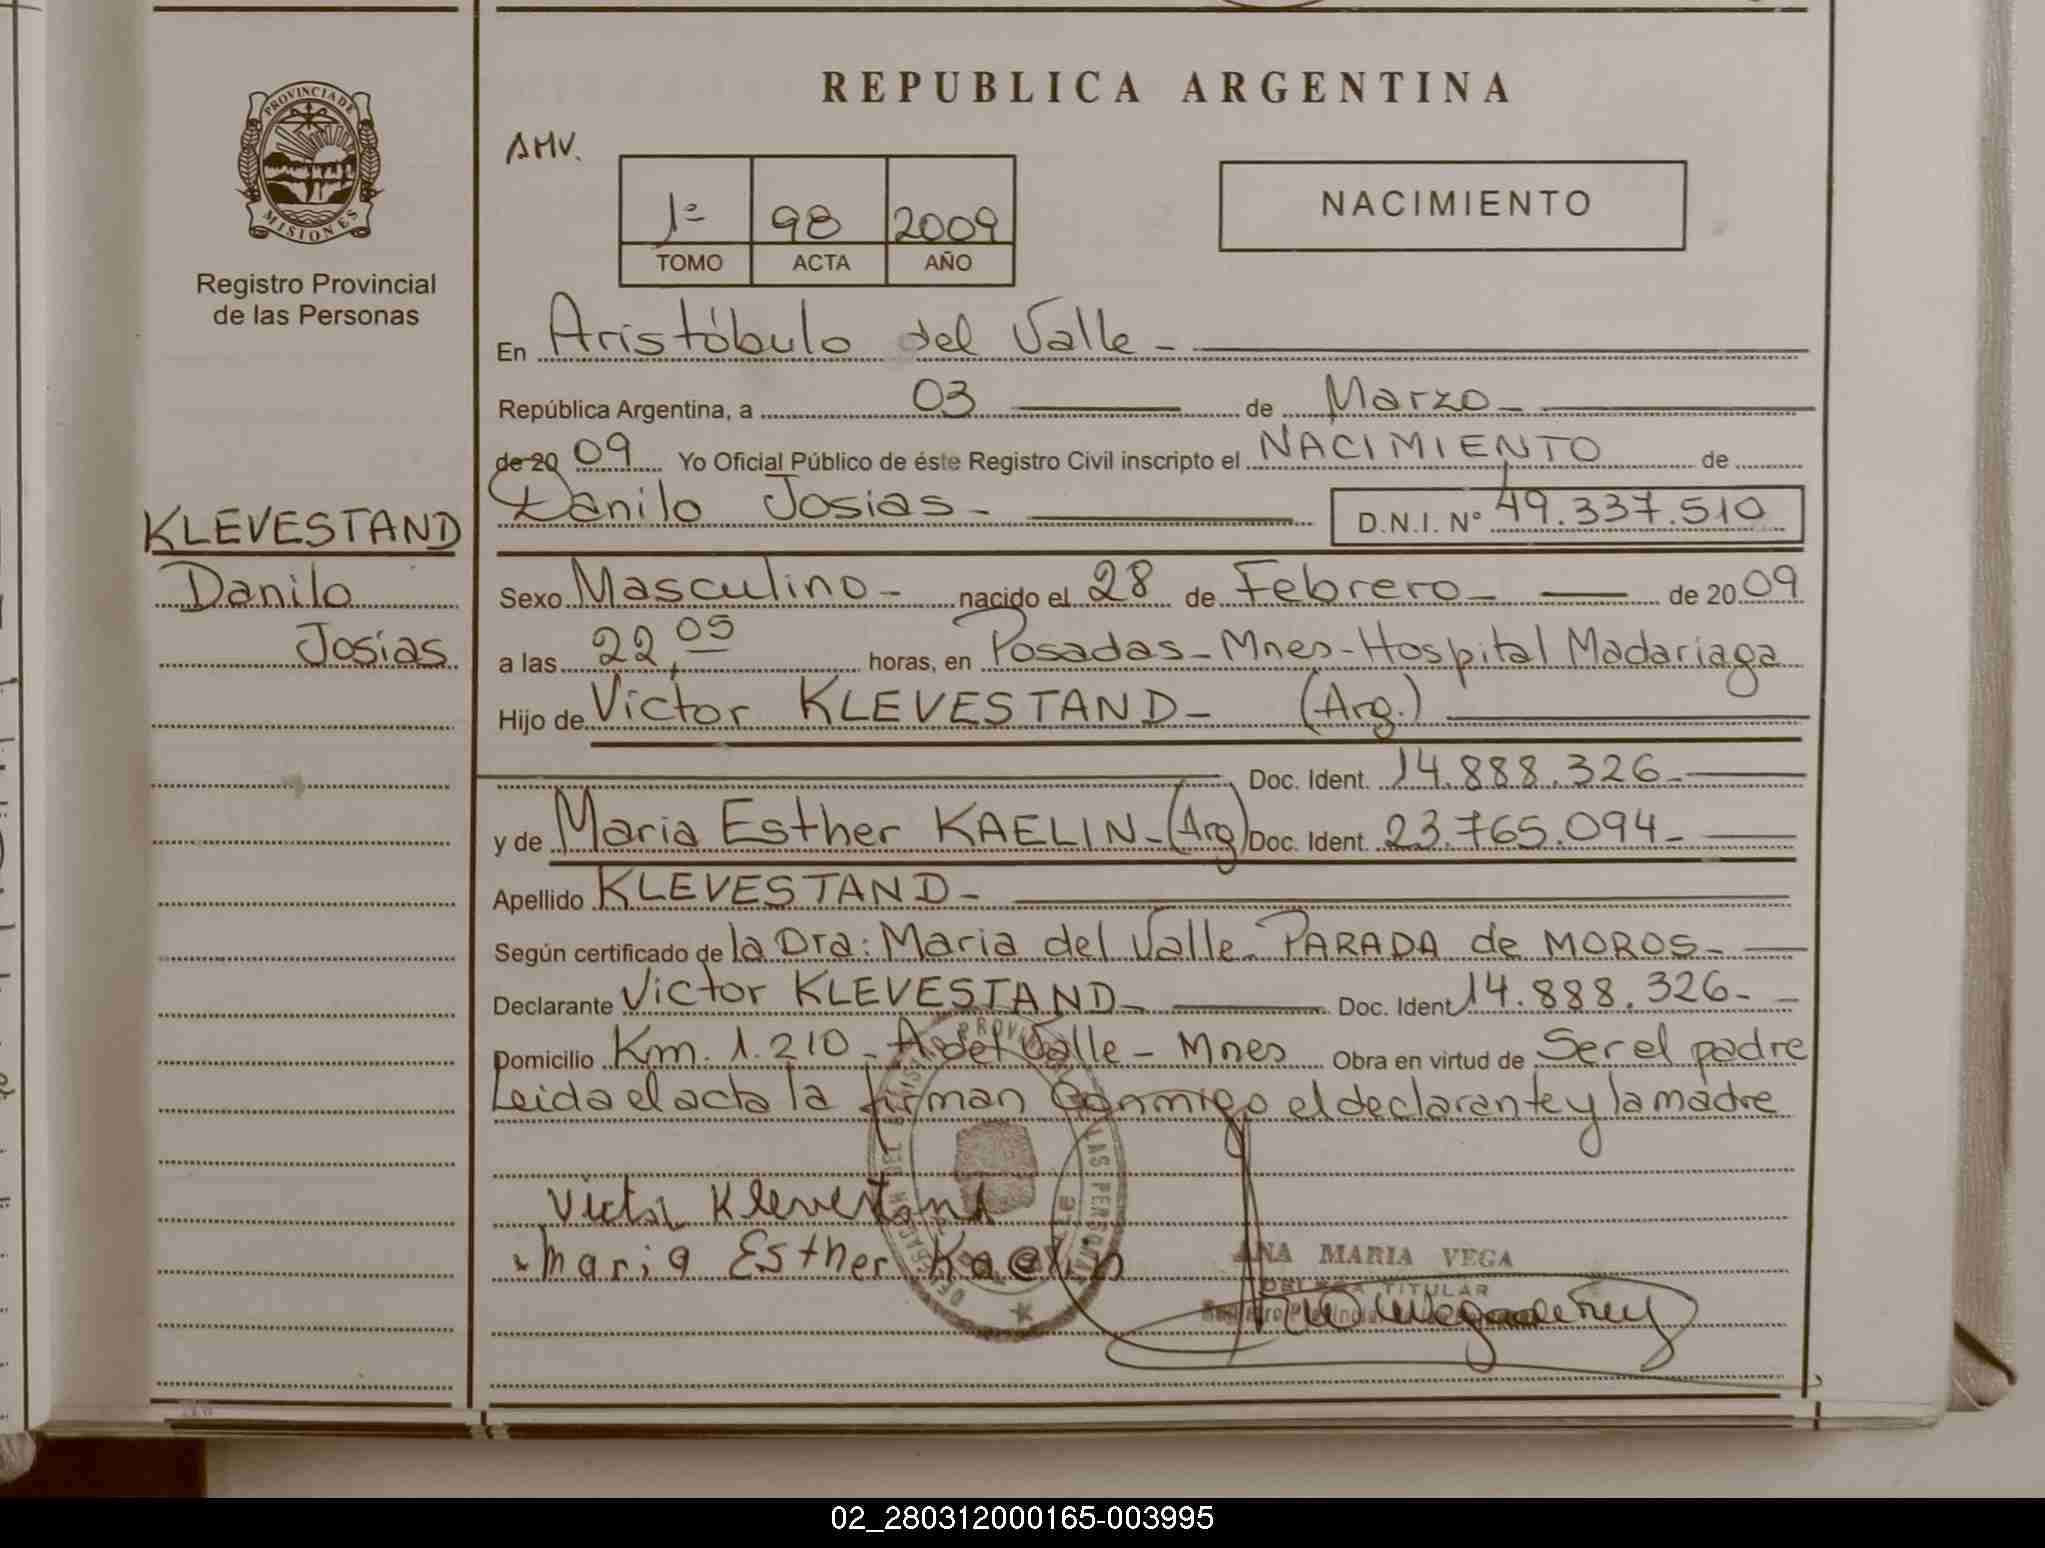 PROVINCIA DE
MISIONES
Registro Provincial
de las Personas
KLEVESTAND
Danilo
Josías
REPUBLICA ARGENTINA
AMV.
1º 98 2009
TOMO ACTA AÑO
NACIMIENTO
En Aristóbulo del Valle -
República Argentina, a 03 de Marzo -
de 20 09 Yo Oficial Público de éste Registro Civil inscripto el NACIMIENTO de
Danilo Josías - D.N.I. Nº 49.337.510
Sexo Masculino - nacido el 28 de Febrero - de 20 09
a las 22,05 horas, en Posadas - Mnes - Hospital Madariaga
Hijo de Victor KLEVESTAND - (Arg.)
Doc. Ident. 14.888.326 -
y de Maria Esther KAELIN - (Arg) Doc. Ident. 23.765.094 -
Apellido KLEVESTAND -
Según certificado de la Dra: Maria del Valle PARADA de MOROS -
Declarante Victor KLEVESTAND - Doc. Ident 14.888.326 -
Domicilio Km. 1.210 - A. del Valle - Mnes Obra en virtud de Ser el padre
Leida el acta la firman Conmigo el declarante y la madre
Victor Klevestand
Maria Esther Kaelin
ANA MARIA VEGA
TITULAR
02_280312000165-003995